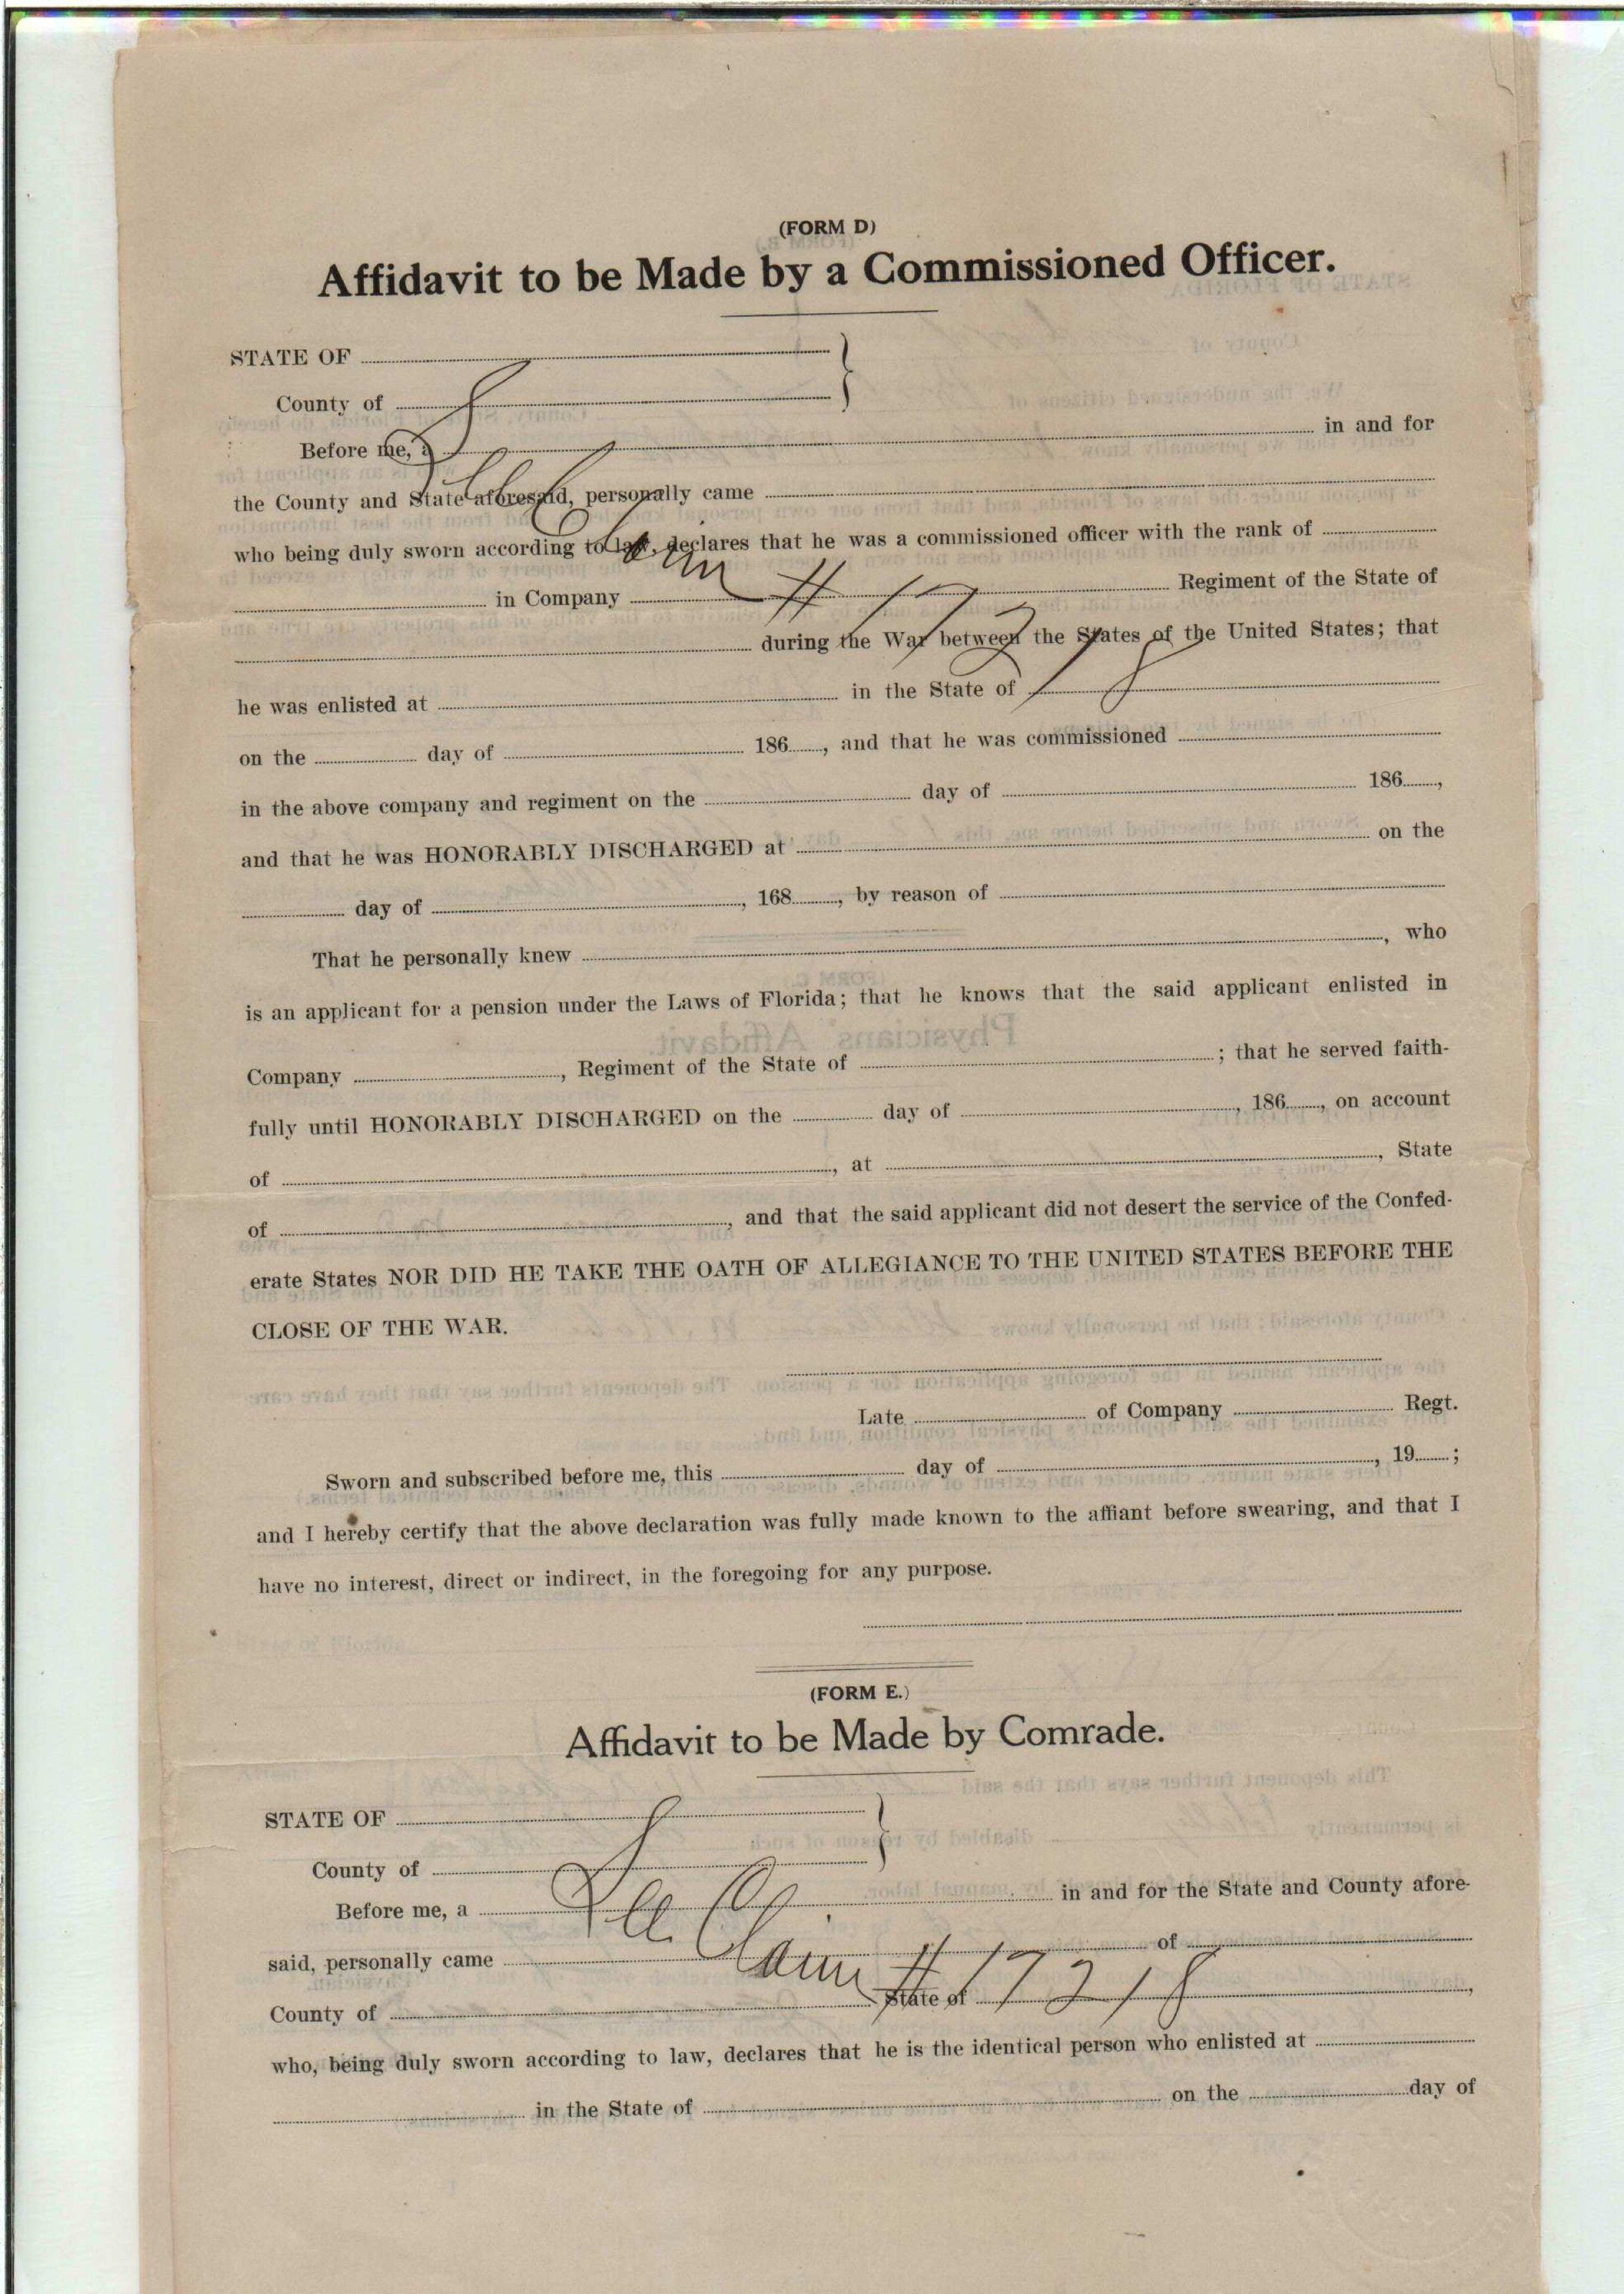 (FORM D)
Affidavit to be Made by a Commissioned Officer.
STATE OF
County of
Before me, a in and for
the County and State aforesaid, personally came
who being duly sworn according to law, declares that he was a commissioned officer with the rank of
in Company Regiment of the State of
during the War between the States of the United States; that
he was enlisted at in the State of
on the day of 186, and that he was commissioned
in the above company and regiment on the day of 186,
and that he was HONORABLY DISCHARGED at on the
day of , 168, by reason of
That he personally knew , who
is an applicant for a pension under the Laws of Florida; that he knows that the said applicant enlisted in
Company , Regiment of the State of ; that he served faith-
fully until HONORABLY DISCHARGED on the day of , 186, on account
of , at , State
of , and that the said applicant did not desert the service of the Confed-
erate States NOR DID HE TAKE THE OATH OF ALLEGIANCE TO THE UNITED STATES BEFORE THE
CLOSE OF THE WAR.
Late of Company Regt.
Sworn and subscribed before me, this day of , 19 ;
and I hereby certify that the above declaration was fully made known to the affiant before swearing, and that I
have no interest, direct or indirect, in the foregoing for any purpose.
(FORM E.)
Affidavit to be Made by Comrade.
STATE OF
County of
Before me, a in and for the State and County afore-
said, personally came of
County of State of ,
who, being duly sworn according to law, declares that he is the identical person who enlisted at
in the State of on the day of